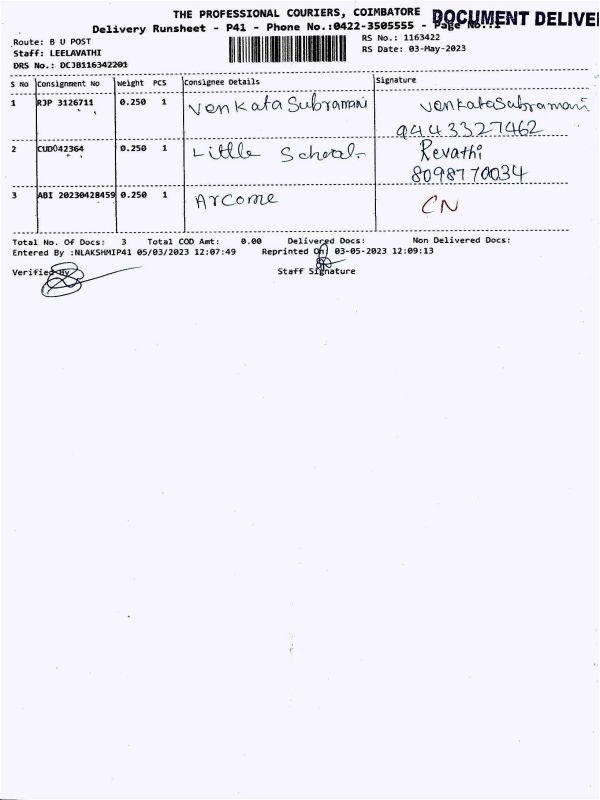 THE PROFESSIONAL COURIERS, COIMBATORE
DOCUMENT DELIVE
Delivery Runsheet - P41 - Phone No.:0422-3505555 - Page No.:1
Route: B U POST
RS No.: 1163422
Staff: LEELAVATHI
RS Date: 03-May-2023
DRS No.: DCJB116342201
S No Consignment No Weight PCS Consignee Details Signature
1 RJP 3126711 0.250 1 Venkata Subramani venkataSubramani
9443327462
2 CUD042364 0.250 1 Little School Revathi
8098770034
3 ABI 20230428459 0.250 1 Arcome CN
Total No. Of Docs: 3 Total COD Amt: 0.00 Delivered Docs: Non Delivered Docs:
Entered By :NLAKSHMIP41 05/03/2023 12:07:49 Reprinted On 03-05-2023 12:09:13
Verified By
Staff Signature